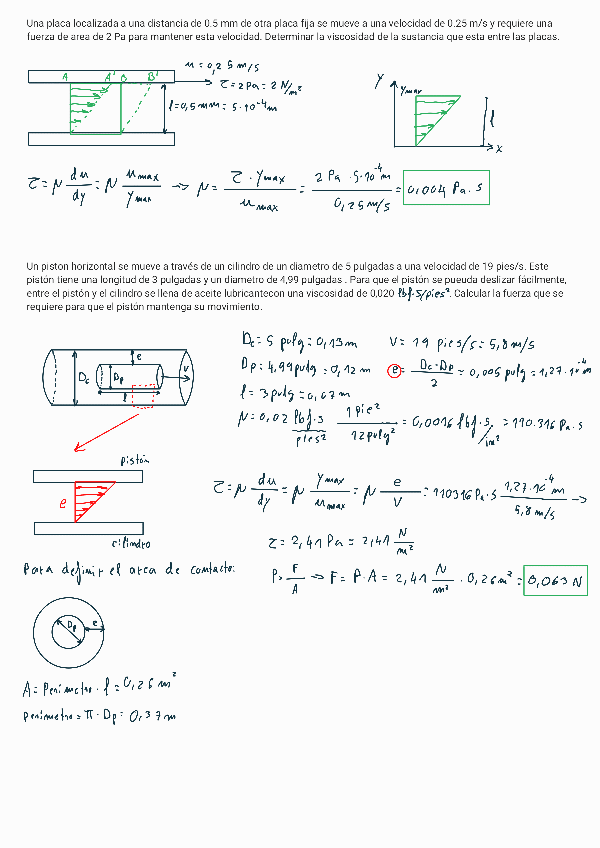 Una placa localizada a una distancia de 0.5 mm de otra placa fija se mueve a una velocidad de 0.25 m/s y requiere una
fuerza de area de 2 Pa para mantener esta velocidad. Determinar la viscosidad de la sustancia que esta entre las placas.
u = 0,25 m/s
A A' B B'
τ = 2 Pa = 2 N/m²
l = 0,5 mm = 5·10⁻⁴ m
Y Ymax l x
τ = μ du/dy = μ umax/ymax → μ = τ · ymax / umax = 2 Pa · 5·10⁻⁴ m / 0,25 m/s = 0,004 Pa·s
Un piston horizontal se mueve a través de un cilindro de un diametro de 5 pulgadas a una velocidad de 19 pies/s. Este
pistón tiene una longitud de 3 pulgadas y un diametro de 4,99 pulgadas . Para que el pistón se pueuda deslizar fácilmente,
entre el pistón y el cilindro se llena de aceite lubricantecon una viscosidad de 0,020 lbf·s/pies². Calcular la fuerza que se
requiere para que el pistón mantenga su movimiento.
Dc = 5 pulg = 0,13 m V = 19 pies/s = 5,8 m/s
Dc Dp e l V
Dp = 4,99 pulg = 0,12 m e = Dc - Dp / 2 = 0,005 pulg = 1,27·10⁻⁴ m
l = 3 pulg = 0,07 m
μ = 0,02 lbf·s/pies² 1 pie²/12 pulg² = 0,0016 lbf·s/in² = 110.316 Pa·s
pistón
e
cilindro
τ = μ du/dy = μ ymax/umax = μ e/V = 110316 Pa·s 1,27·10⁻⁴ m / 5,8 m/s →
τ = 2,41 Pa = 2,41 N/m²
Para definir el area de contacto:
P = F/A → F = P·A = 2,41 N/m² · 0,26 m² = 0,063 N
Dp e
A = Perimetro · l = 0,26 m²
Perimetro = π · Dp = 0,37 m